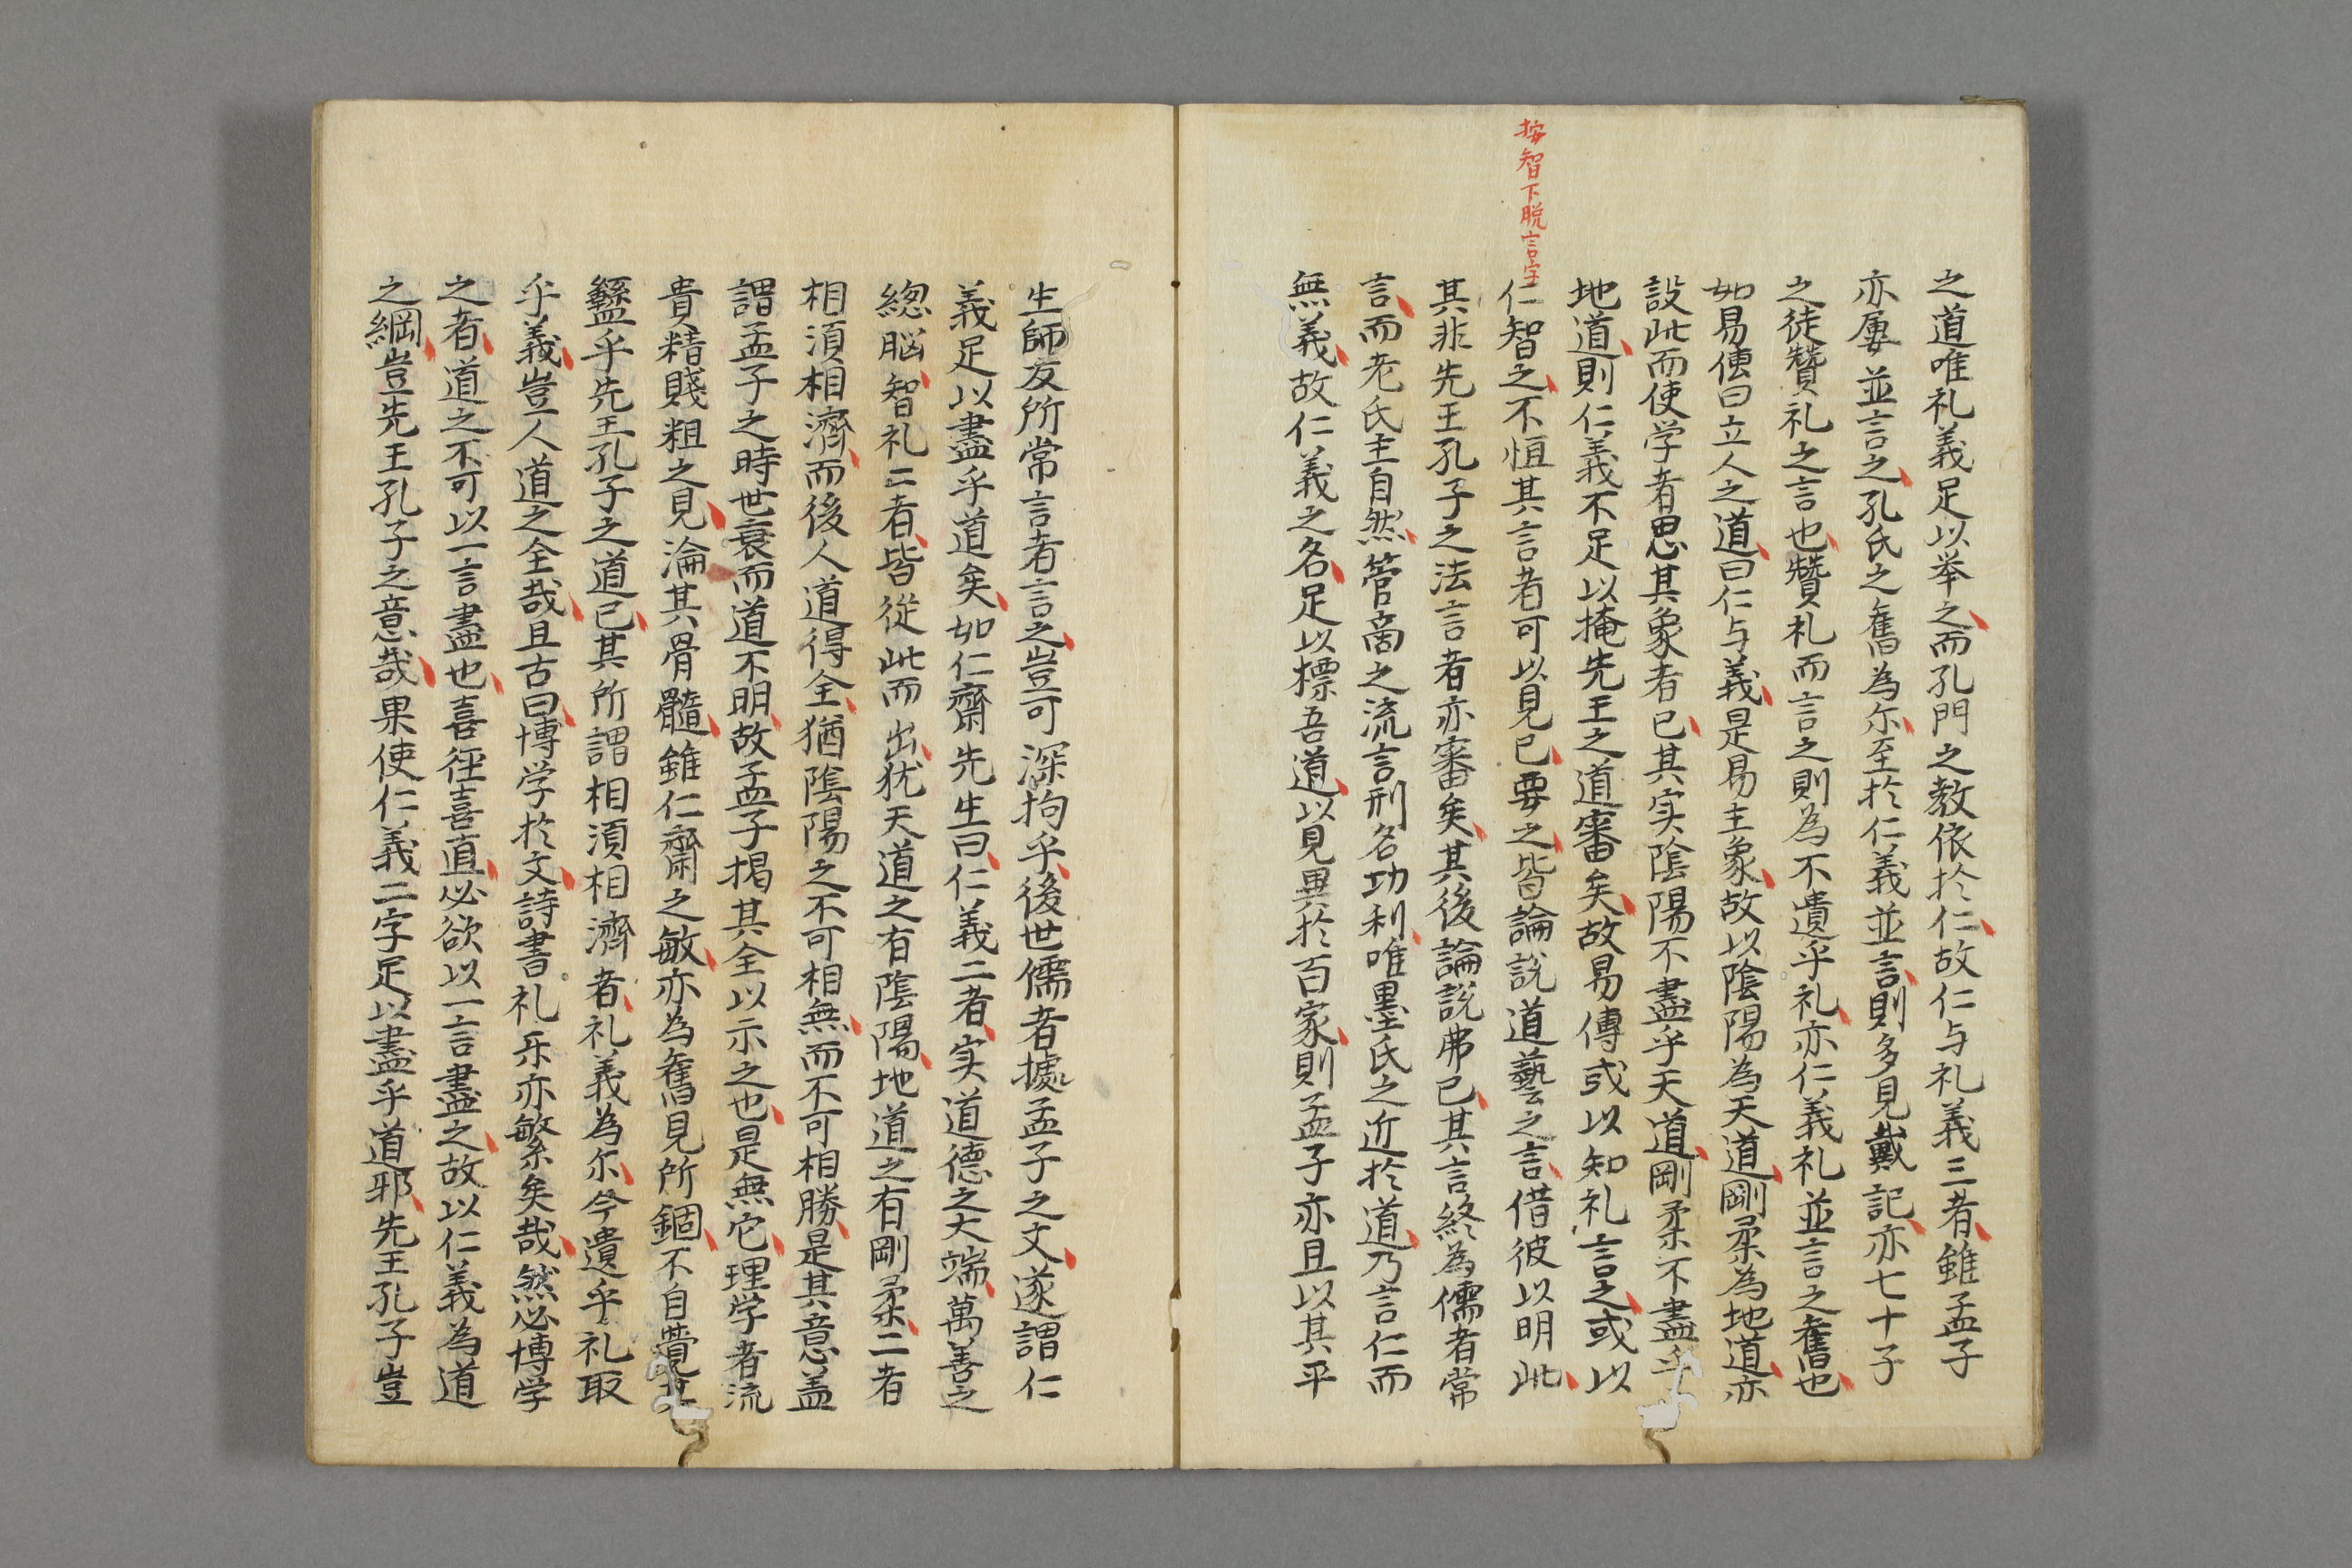 之道唯礼義足以举之而孔門之教依於仁故仁与礼義三者雖孟子
亦屢並言之孔氏之舊為尔至於仁義並言則多見戴記亦七十子
之徒贊礼之言也贊礼而言之則為不遺乎礼亦仁義礼並言之舊也
如易傳曰立人之道曰仁与義是易主象故以陰陽為天道剛柔為地道亦
設此而使学者思其象者已其実陰陽不盡乎天道剛柔不盡乎
地道則仁義不足以掩先王之道審矣故易傳或以知礼言之或以
按智下脱言字
仁智之不恒其言者可以見已要之皆論說道藝之言借彼以明此
其非先王孔子之法言者亦審矣其後論說弗已其言終為儒者常
言而老氏主自然管商之流言刑名功利唯墨氏之近於道乃言仁而
無義故仁義之名足以標吾道以見異於百家則孟子亦且以其平
生師友所常言者言之豈可深拘乎後世儒者據孟子之文遂謂仁
義足以盡乎道矣如仁齋先生曰仁義二者実道德之大端萬善之
総脳智礼二者皆從此而出犹天道之有陰陽地道之有剛柔二者
相須相濟而後人道得全猶陰陽之不可相無而不可相勝是其意盖
謂孟子之時世衰而道不明故孟子掲其全以示之也是無它理学者流
貴精賤粗之見淪其骨髓雖仁齋之敏亦為舊見所錮不自覺其
盭乎先王孔子之道已其所謂相須相濟者礼義為尔今遺乎礼取
乎義豈人道之全哉且古曰博学於文詩書礼乐亦繁矣哉然必博学
之者道之不可以一言盡也喜徑喜直必欲以一言盡之故以仁義為道
之綱豈先王孔子之意哉果使仁義二字足以盡乎道邪先王孔子豈